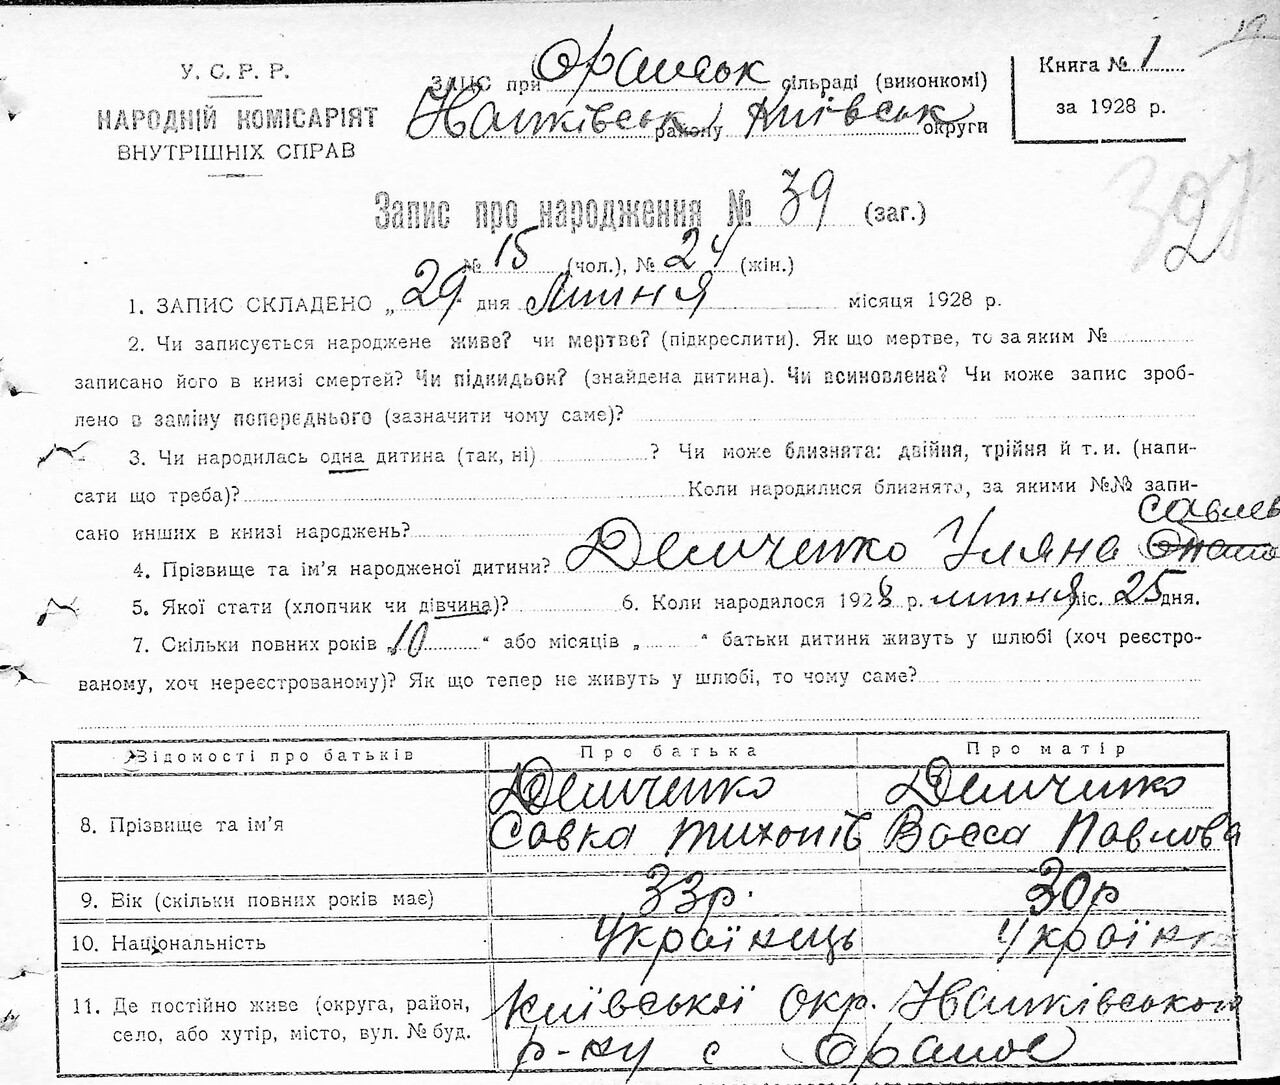 19
У. С. Р. Р.
НАРОДНІЙ КОМІСАРІЯТ
ВНУТРІШНІХ СПРАВ
ЗАЦС при сільраді (виконкомі)
району Київськ округи
Книга № 1
за 1928 р.
327
Запис про народження № 39 (заг.)
№ 15 (чол.), № 24 (жін.)
1. ЗАПИС СКЛАДЕНО „29“ дня липня місяця 1928 р.
2. Чи записується народжене живе? чи мертве? (підкреслити). Як що мертве, то за яким №
записано його в книзі смертей? Чи підкидьок? (знайдена дитина). Чи всиновлена? Чи може запис зроб-
лено в заміну попереднього (зазначити чому саме)?
3. Чи народилась одна дитина (так, ні) ? Чи може близнята: двійня, трійня й т. и. (напи-
сати що треба)? Коли народилися близнята, за якими №№ запи-
сано инших в книзі народжень?
Савлев
4. Прізвище та ім’я народженої дитини? Демченко Уляна
5. Якої стати (хлопчик чи дівчина)? 6. Коли народилося 1928 р. липня міс. 25 дня.
7. Скільки повних років „10“ або місяців „ “ батьки дитини живуть у шлюбі (хоч реєстро-
ваному, хоч нереєстрованому)? Як що тепер не живуть у шлюбі, то чому саме?
Відомості про батьків Про батька Про матір
8. Прізвище та ім’я Демченко Демченко
Савка Тихонів Васса Павлова
9. Вік (скільки повних років має) 33р. 30р
10. Національність Українець Українка
11. Де постійно живе (округа, район,
село, або хутір, місто, вул. № буд.
Київської окр.
р-ну с